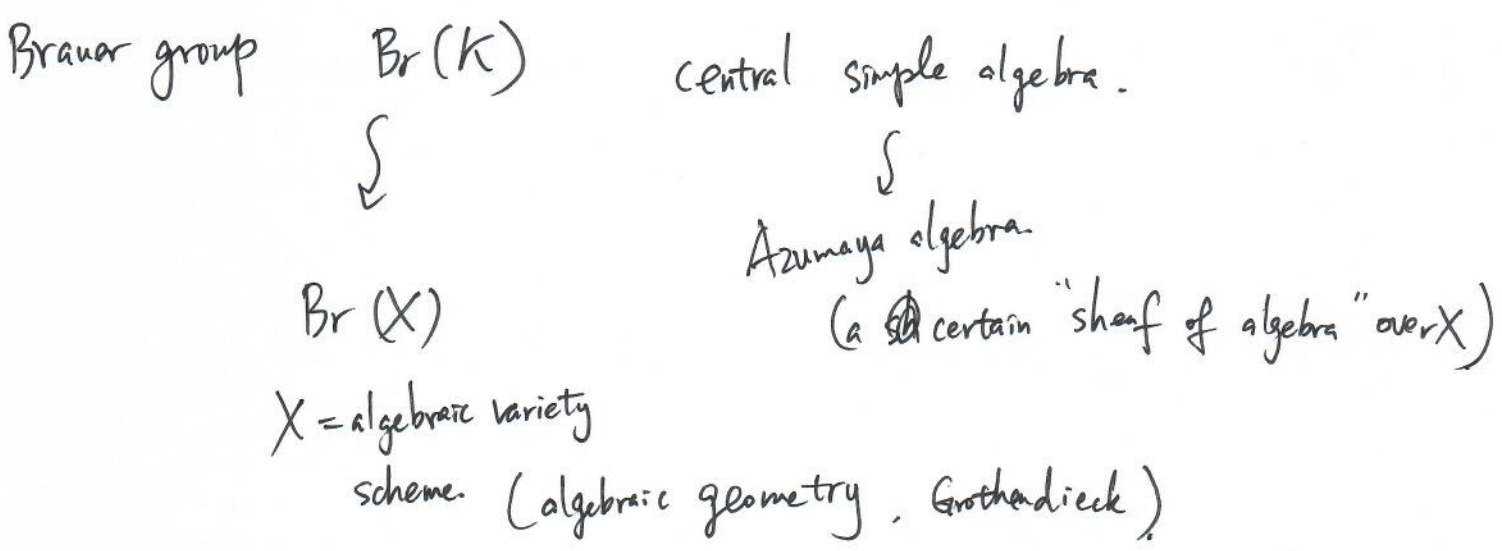 Brauer group Br(K) central simple algebra.
Azumaya algebra.
Br(X) (a certain "sheaf of algebra" over X)
X = algebraic variety
scheme. (algebraic geometry, Grothendieck)